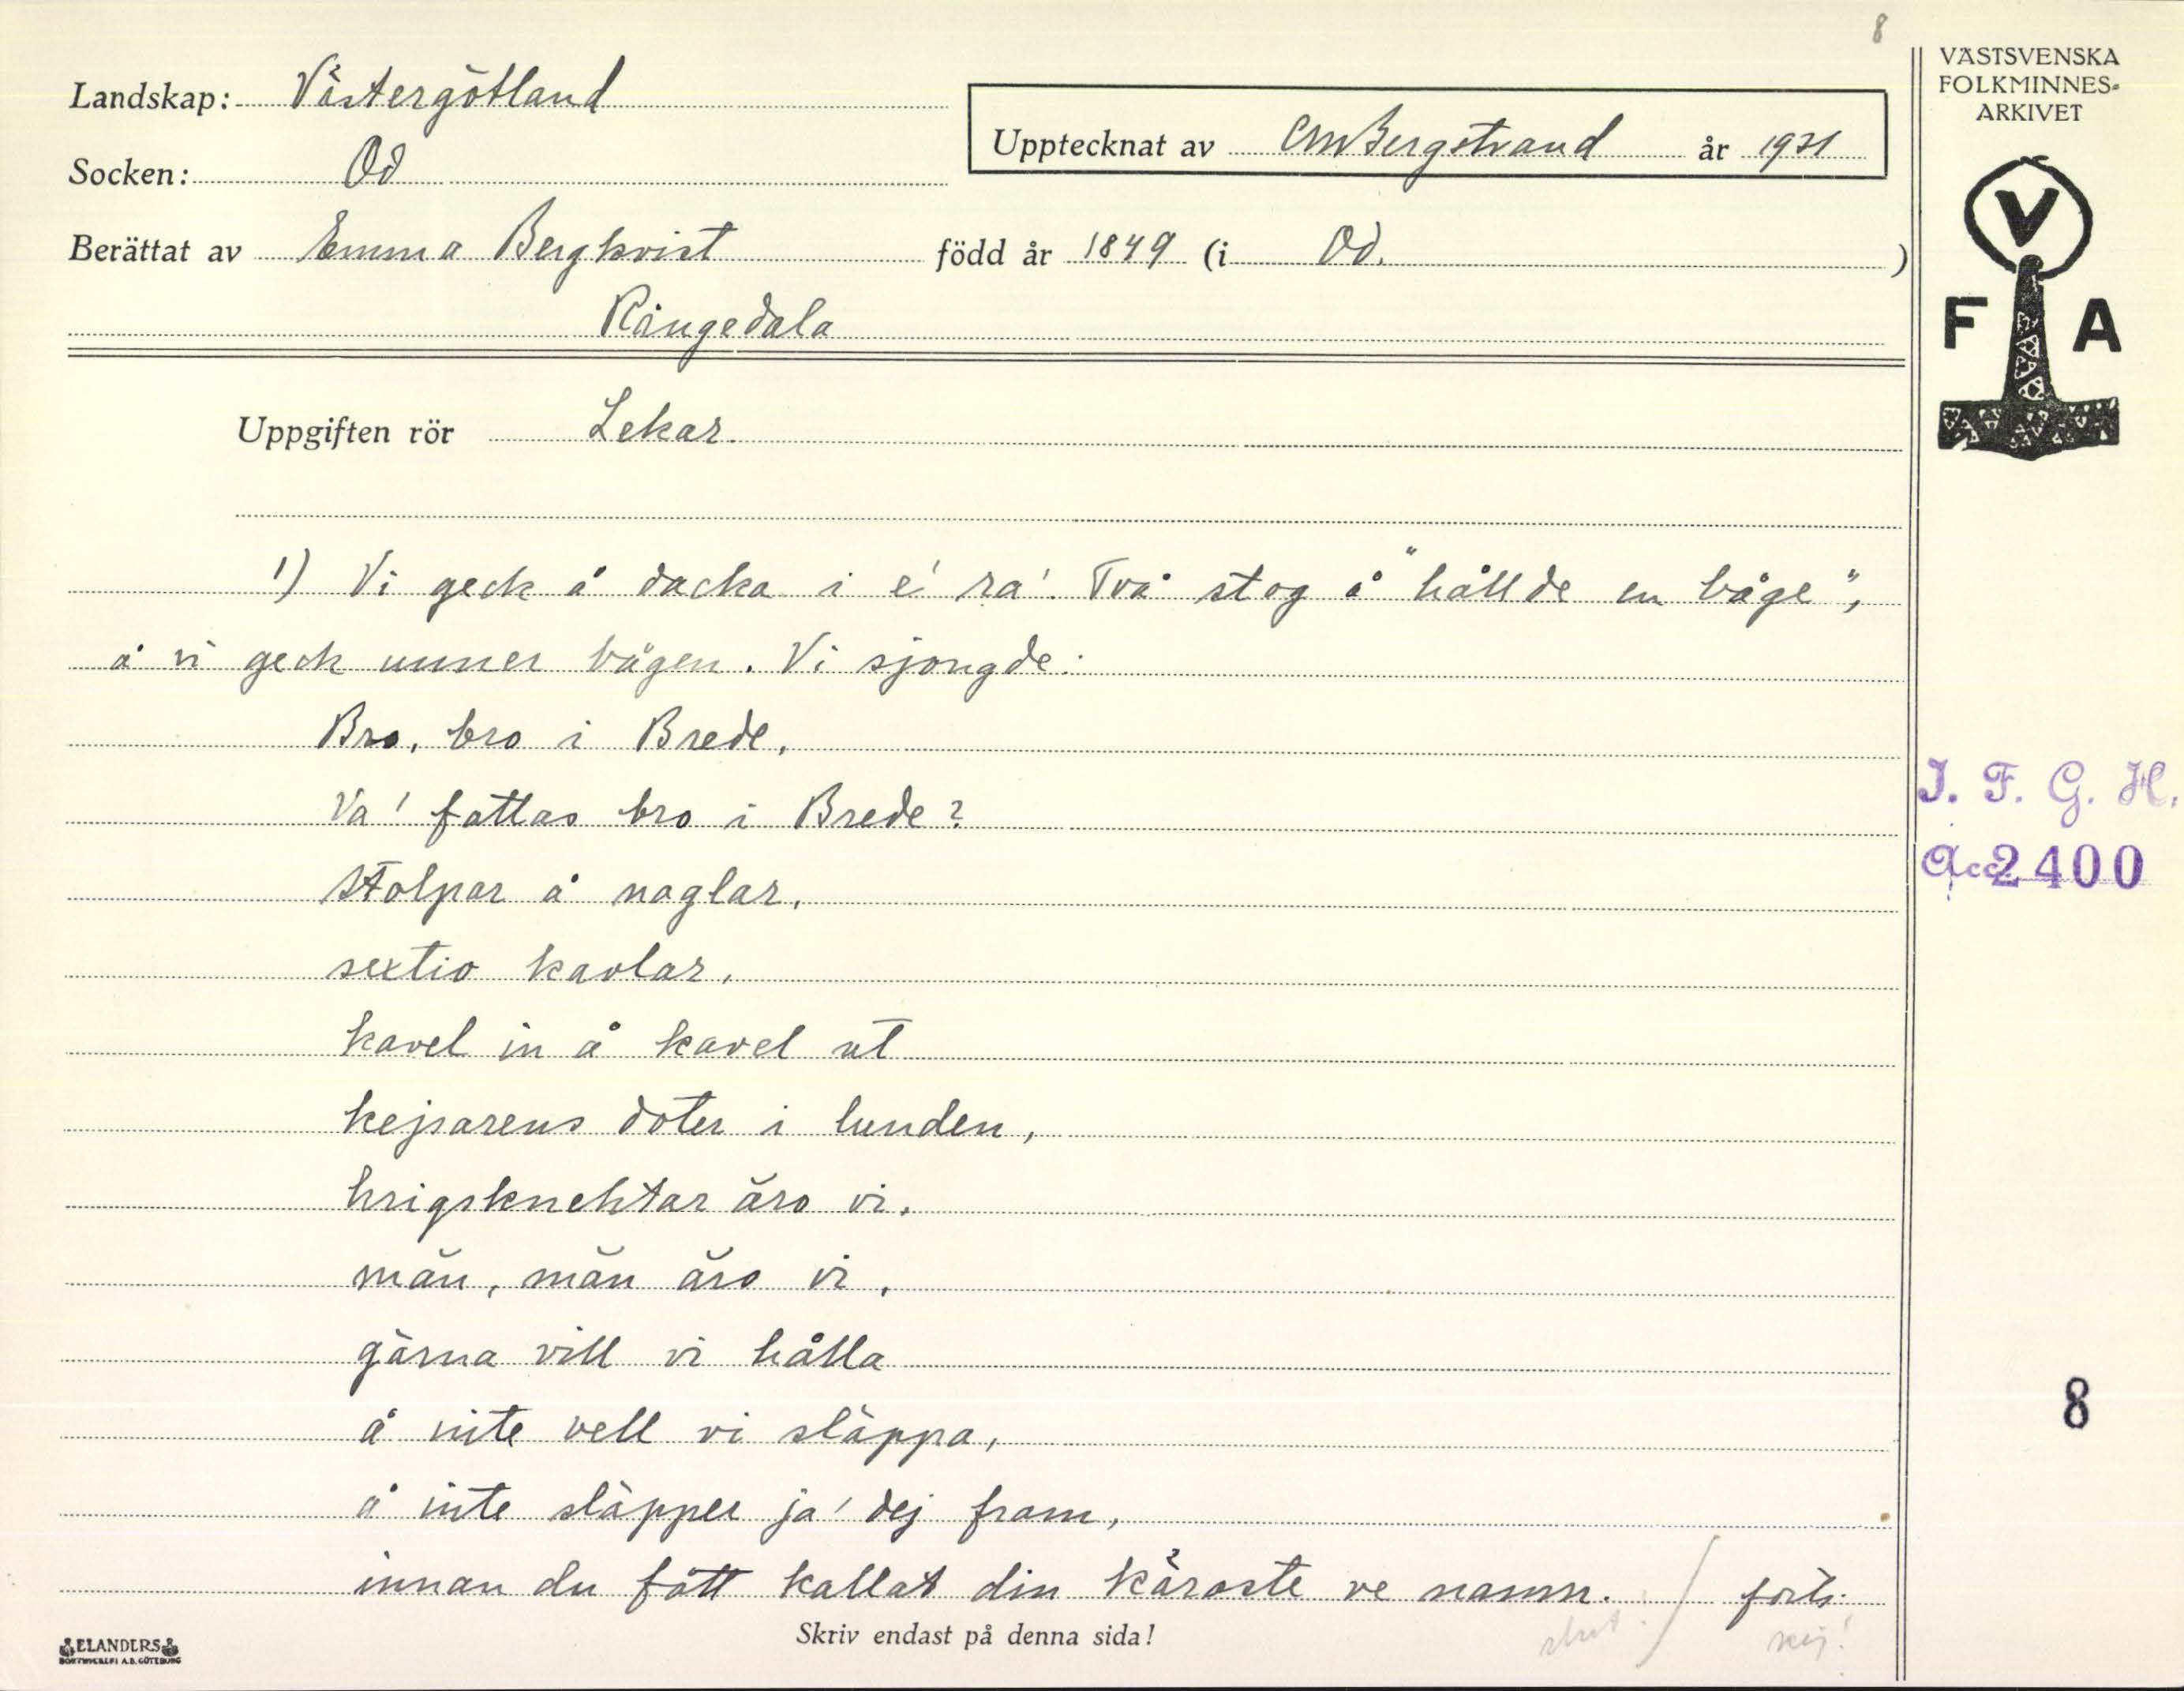 8
Landskap: Västergötland
Socken: Od
Upptecknat av CMBergstrand år 1931
Berättat av Emma Bergkvist född år 1849 (i Od.)
Rångedala
Uppgiften rör Lekar.
1) Vi geck å dacka i ei ra'. Två stog å "hållde en båge",
å vi geck unner bågen. Vi sjongde:
Bro, bro i Brede,
Va' fattas bro i Brede?
Stolpar å naglar,
sextio kavlar,
kavel in å kavel ut
kejsarens doter i lunden,
krigsknektar äro vi,
män, män äro vi,
gärna vill vi hålla
å inte vell vi släppa,
å inte släpper ja' dej fram,
innan du fått kallat din käraste ve namn. / forts.
slut! nej!
Skriv endast på denna sida!
ELANDERS
BOKTRYCKERI A.B. GÖTEBORG
VÄSTSVENSKA
FOLKMINNES-
ARKIVET
V
F A
I. F. G. H.
Acc 2400
8